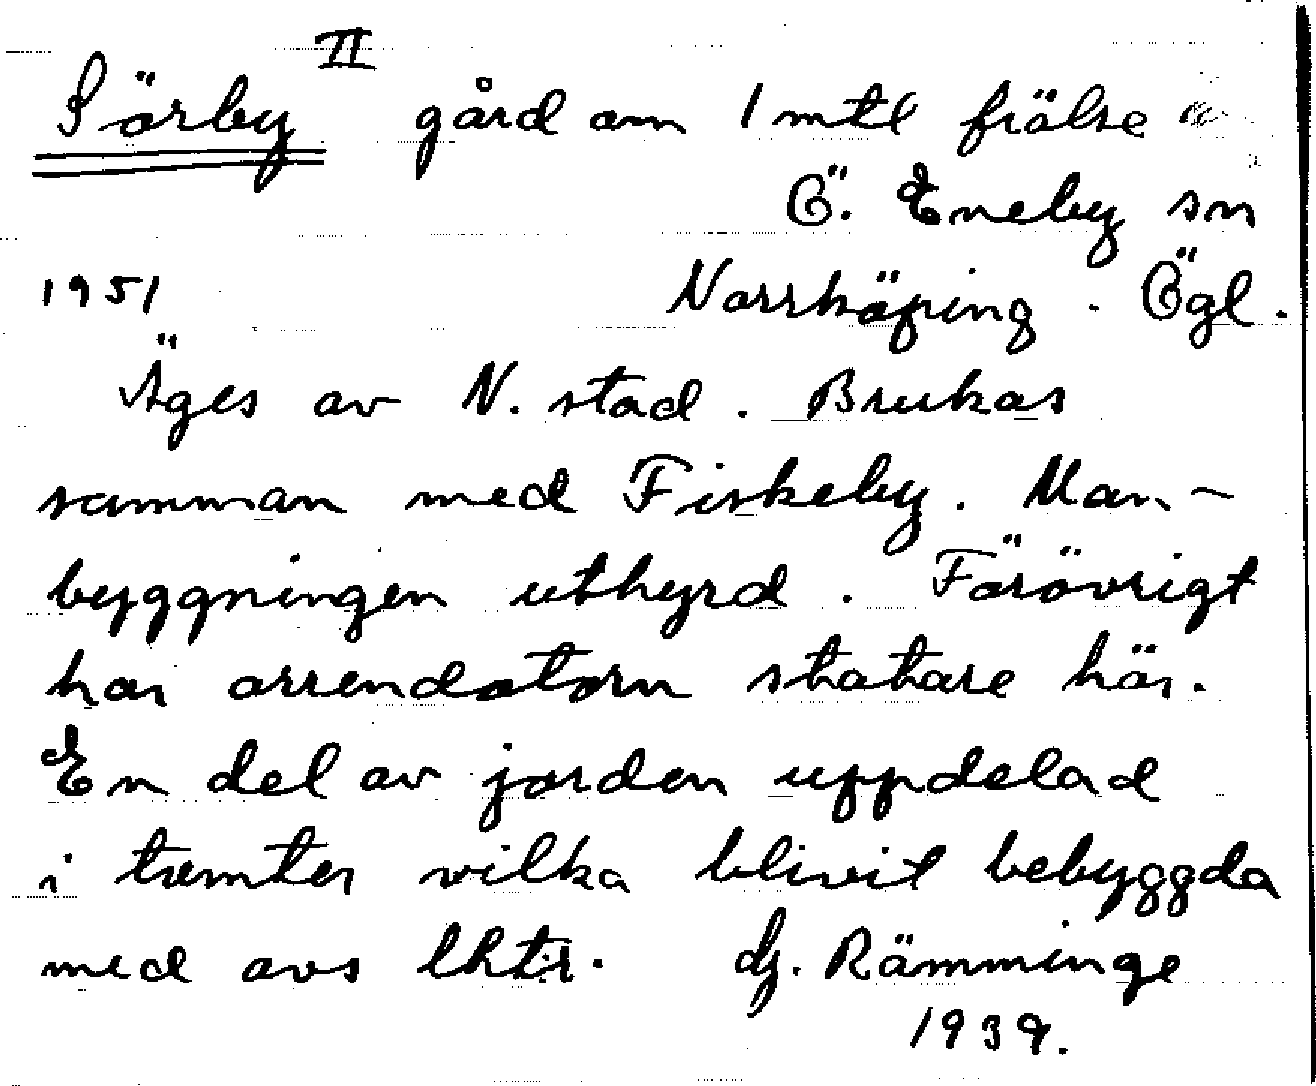 Sörby II gård om 1 mtl frälse
Ö. Eneby sn
1951 Norrköping. Ögl.
Äges av N. stad. Brukas
samman med Fiskeby. Man-
byggningen uthyrd. Förövrigt
har arrendatorn statare här.
En del av jorden uppdelad
i tomter vilka blivit bebyggda
med avs lhtr. dj. Rämminge
1939.